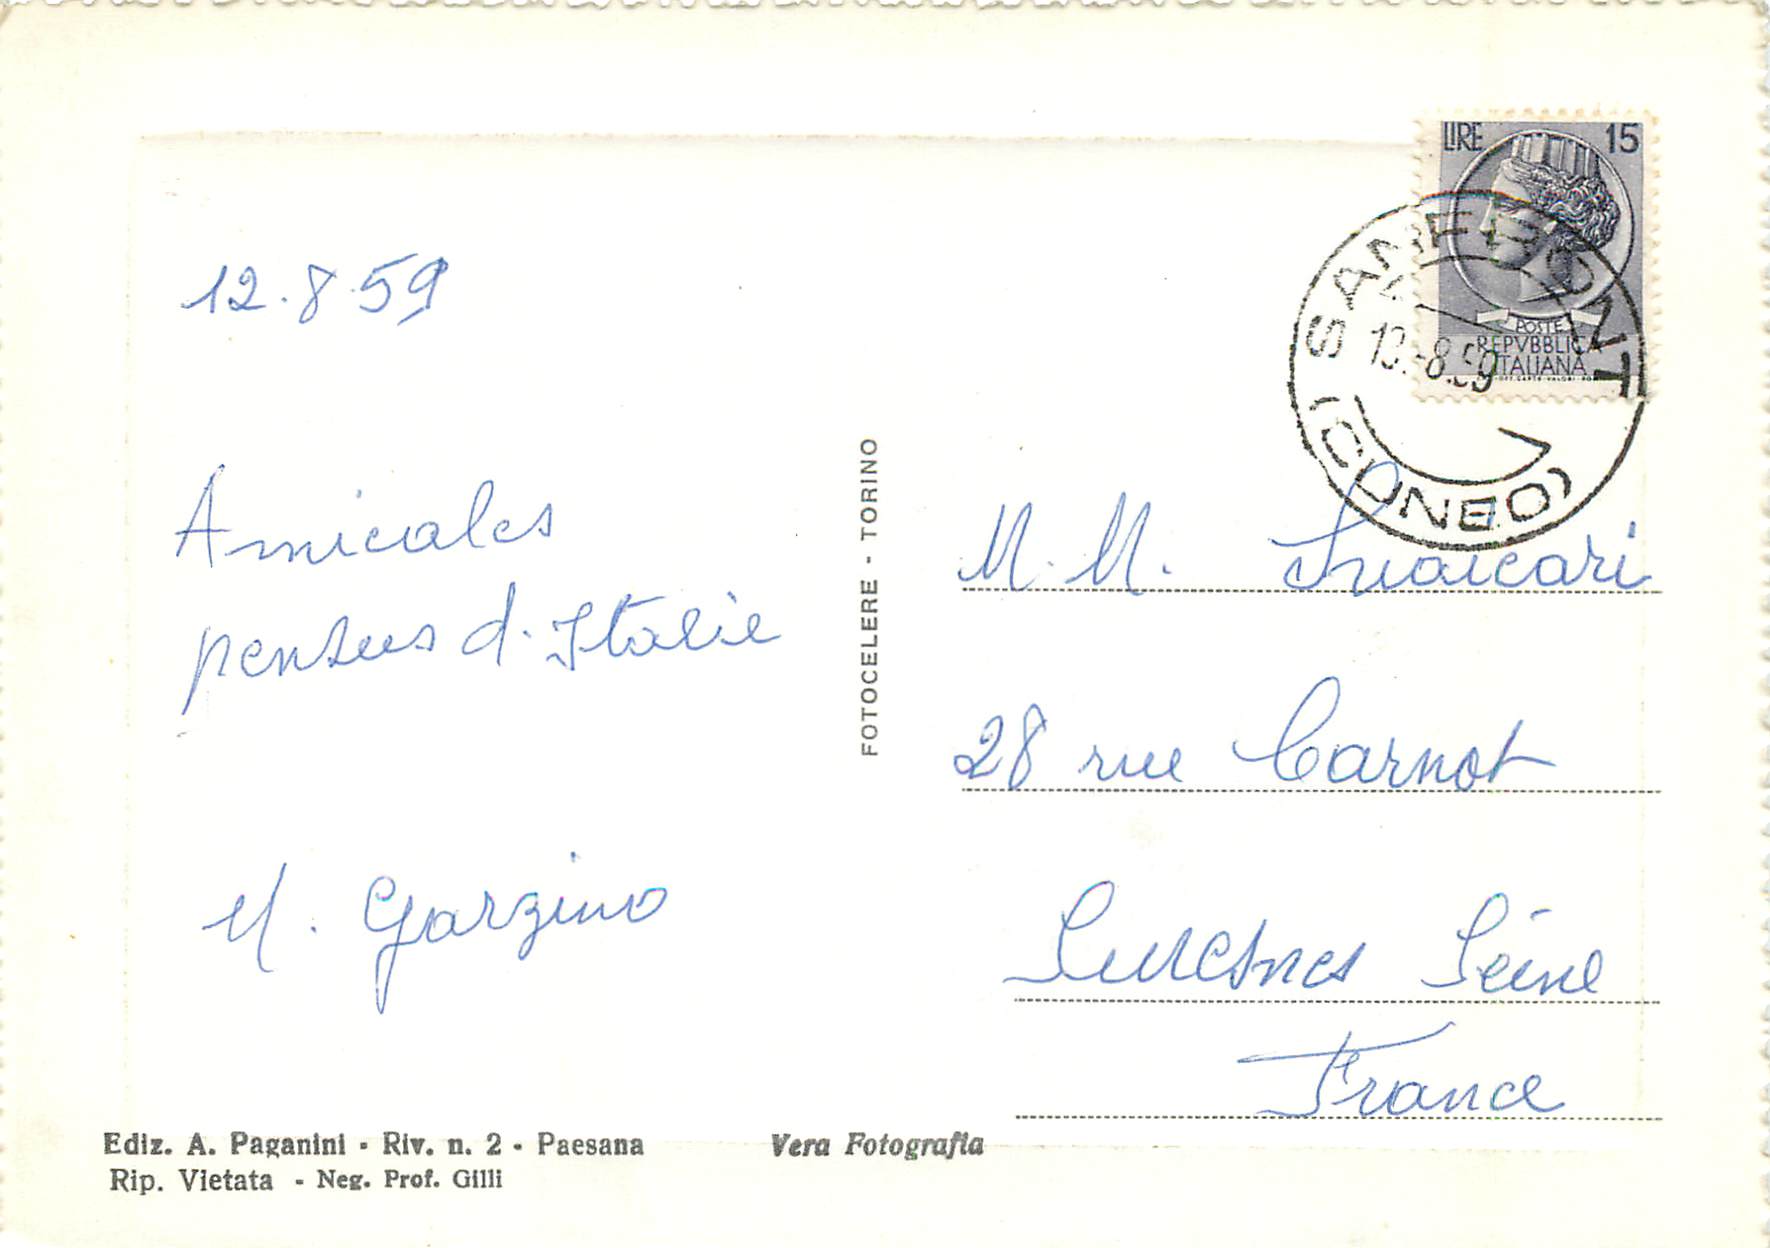 12.8.59
Amicales
pensées d'Italie
M. Garzino
FOTOCELERE - TORINO
LIRE 15
POSTE
REPVBBLICA
ITALIANA
SANFRONT
13.-8.59
(CUNEO)
M. M.
28 rue Carnot
Suresnes Seine
France
Ediz. A. Paganini - Riv. n. 2 - Paesana
Vera Fotografia
Rip. Vietata - Neg. Prof. Gilli